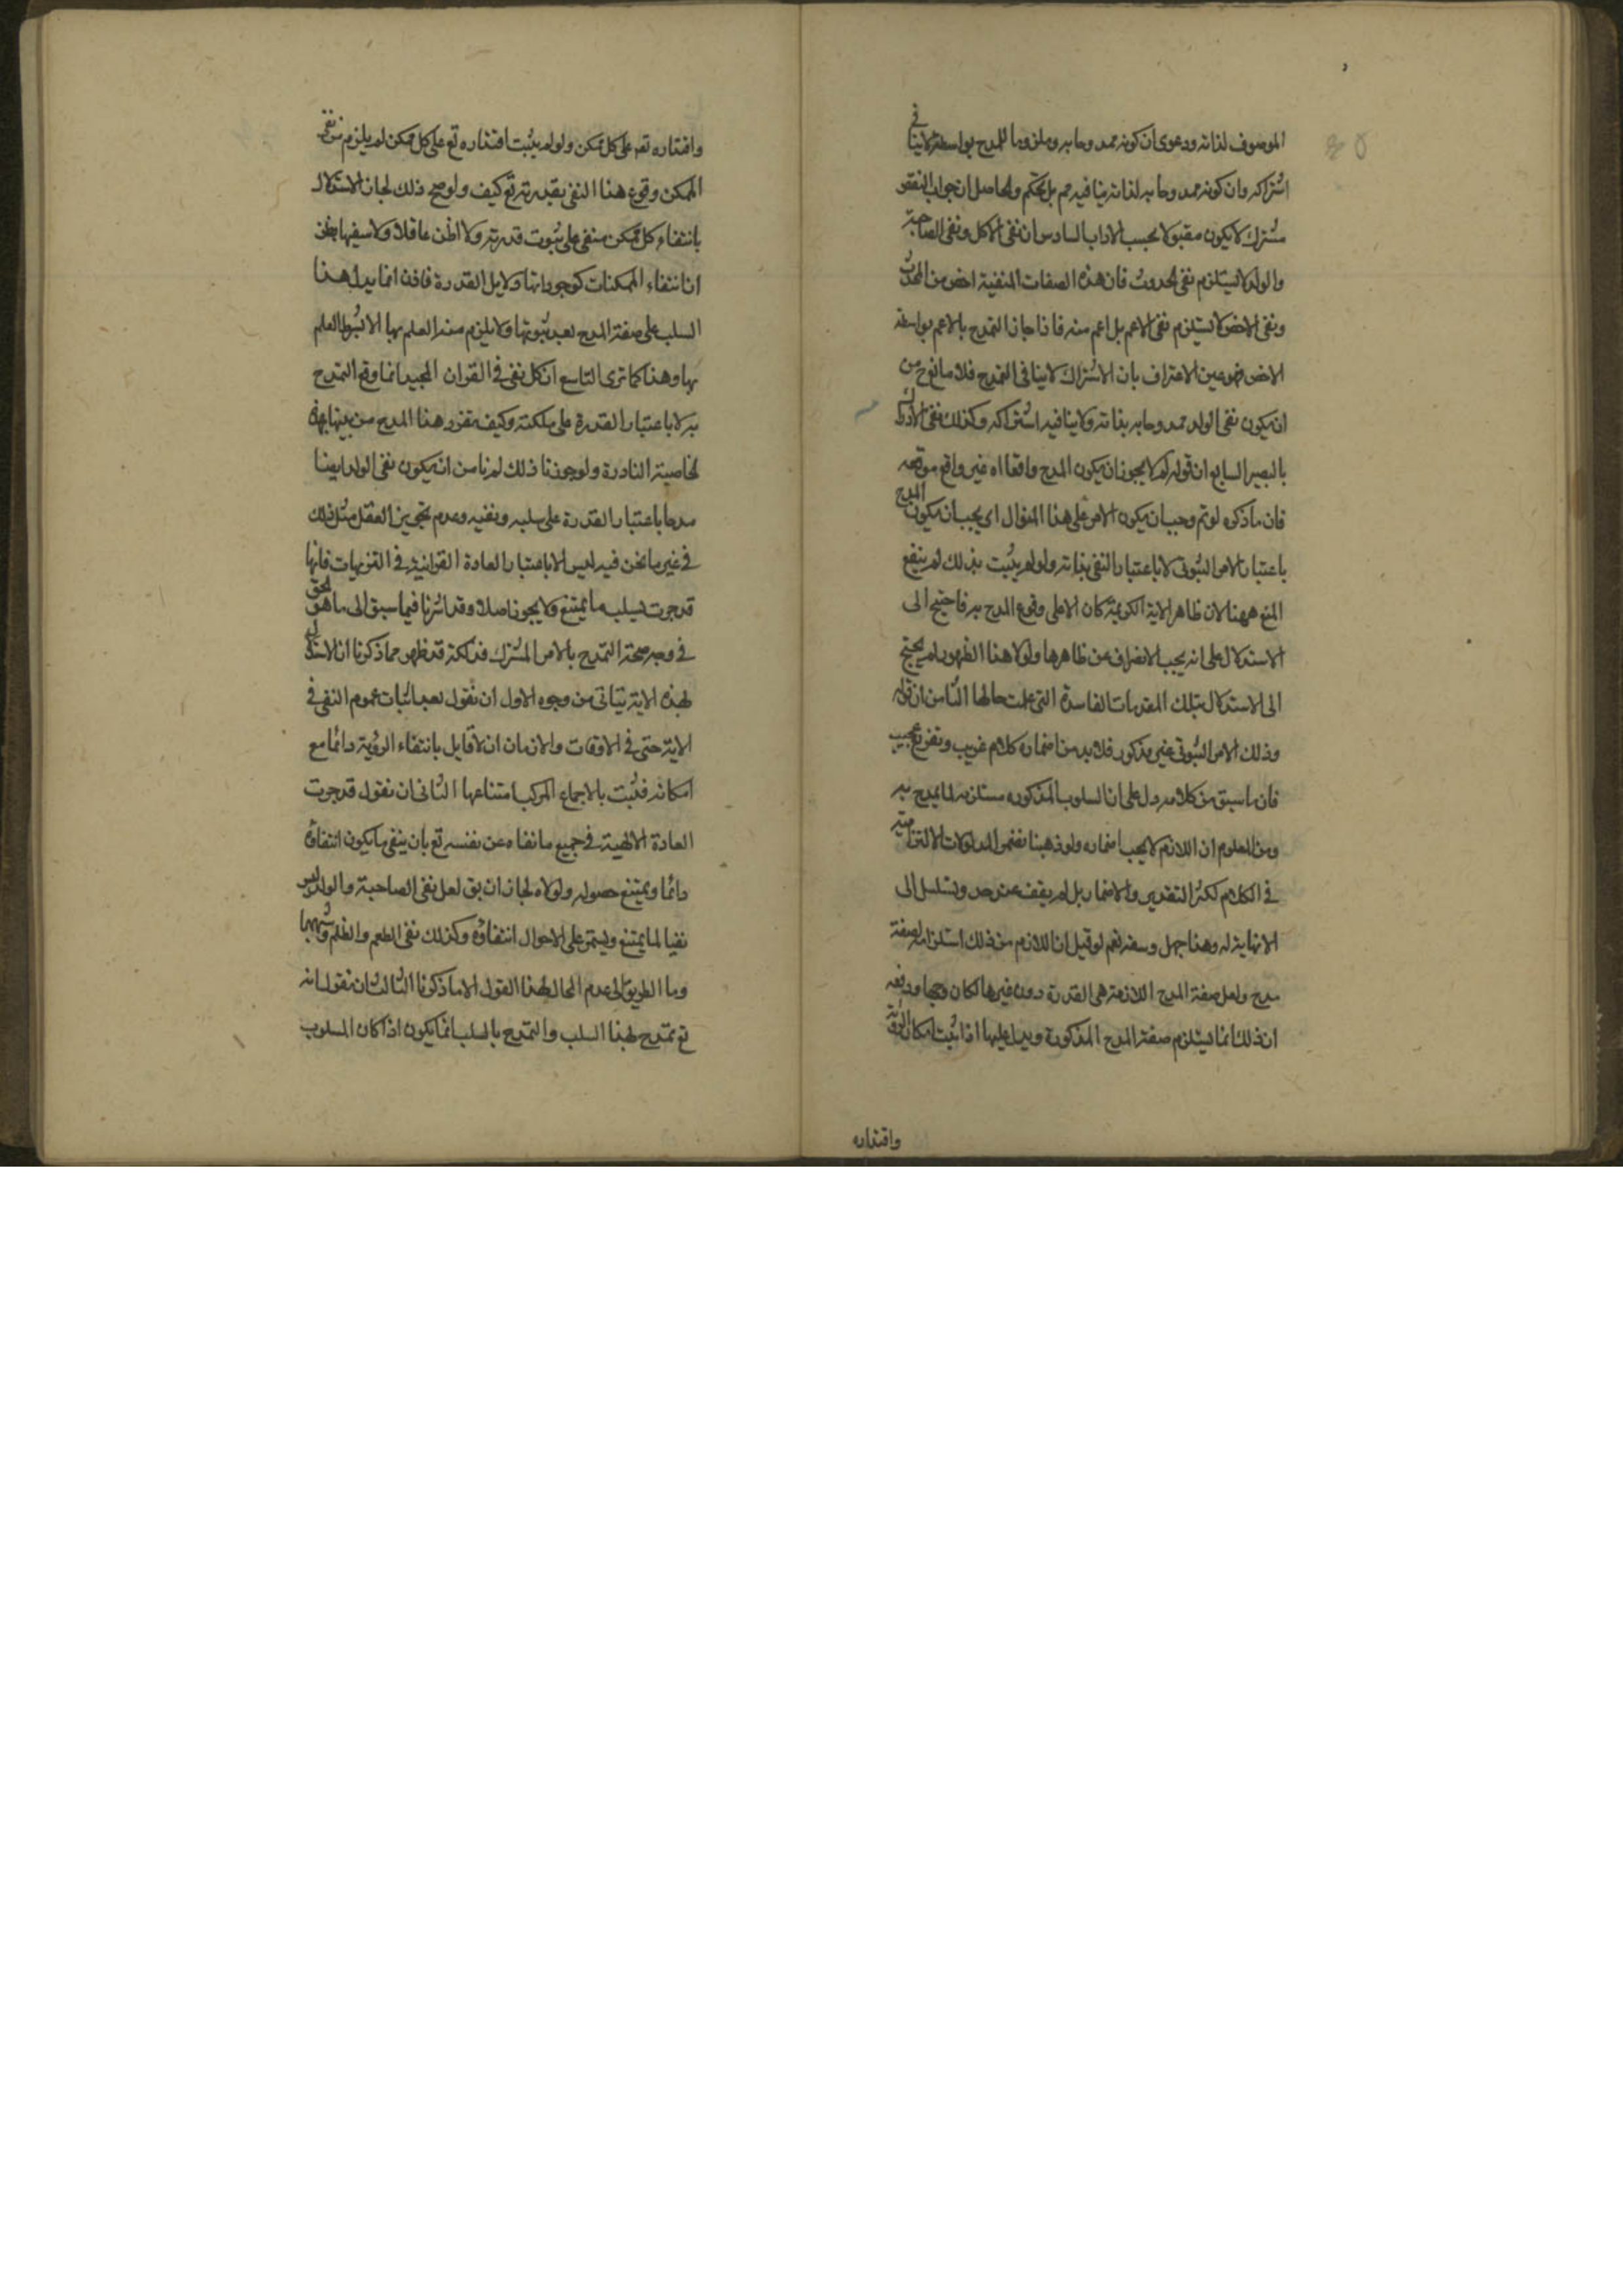 الموصوف لذاته ودعوى ان كونه ممدوحا به وملزوما للمدح بواسطة لا ينافى
اشتراكه وان كونه ممدوحا به لذاته ينافيه مم بل تحكم والحاصل ان جواب النقض
مشترك لا يكون مقبولا بحسب الاداب السادس ان نفى الاكل ونفى الصاحبة
والولد لا يستلزم نفى الحدوث فان هذه الصفات المنفية اخص من الحدث
ونفى الاخص لا يستلزم نفى الاعم بل اعم منه فاذا جاز التمدح بالاعم بواسطة
الاخص فهو عين الاعتراف بان الاشتراك لا ينافى التمدح فلا مانع ح من
ان يكون نفى الولد ممدوحا به بذاته ولا ينافيه اشتراكه وكذلك نفى الادراك
بالبصر السابع ان قوله لم لا يجوز ان يكون المدح واقعا اه غير واقع موقعه
فان ما ذكره لو تم وجب ان يكون الامر على هذا المنوال اى يجب ان يكون المدح
باعتبار الامر الثبوتى لا باعتبار النفى بذاته ولو لم يثبت بذلك لم ينفع
المنع ههنا لان ظاهر الاية الكريمة كان الاعلى وقوع المدح به فاحتيج الى
الاستدلال على انه يجب الانصراف عن ظاهرها ولولا هذا الظهور لم يحتج
الى الاستدلال بتلك المقدمات الفاسدة التى علمت حالها الثامن ان قوله
وذلك الامر الثبوتى غير مذكور فلا بد من اضماره كلام غريب وتفريع عجيب
فان ما سبق من كلامه دل على ان السلوب المذكوره مستلزمه لما يمدح به
ومن المعلوم ان اللازم لا يجب اضماره ولو ذهبنا نضمر المدلولات الالتزامية
فى الكلام لكثر التقدير والاضمار بل لم يقف عند حد وتسلسل الى
الا نهاية له وهذا جهل وسفه نعم لو قيل ان اللازم من ذلك استلزامه لصفة
مدح ولعل صفة المدح اللازمة هى القدرة دون غيرها لكان وجها ودفعه
ان ذلك انما يستلزم صفة المدح المذكورة ويدل عليها اذا ثبت امكان الرؤية
واقتداره
واقتداره تعم على كل ممكن ولو لم يثبت اقتداره تع على كل ممكن لم يلزم من نفى
الممكن وقوع هذا النفى بقدرته تع كيف ولو صح ذلك لجاز الاستدلال
بانتفاء كل ممكن منفى على ثبوت قدرته ولا اظن عاقلا ولا سفيها يظن
ان انتفاء الممكنات كوجوداتها دلايل القدرة فاذن انما يدل هذا
السلب على صفة المدح بعد ثبوتها ولا يلزم منه العلم بها الا بشرط العلم
بها وهذا كما ترى التاسع ان كل نفى فى القران المجيد انما وقع التمدح
به لا باعتبار القدرة على ملكته وكيف تفرد هذا المدح من بينها بهذه
الخاصية النادرة ولو جوزنا ذلك لم نامن ان يكون نفى الولد ايضا
مدحا باعتبار القدرة على سلبه ونفيه وعدم تجويز العقل مثل ذلك
فى غير ما نحن فيه ليس الا باعتبار العادة القرانية فى التنزيهات فانها
قد جرت بسلب ما يمتنع ولا يجوز اصلا وقد اشرنا فيما سبق الى ما هو الحق
فى وجه صحة التمدح بالامر المشترك فذلكة قد ظهر مما ذكرنا ان الاستدلال
بهذه الاية يتاتى من وجوه الاول ان نقول بعد اثبات عموم النفى فى
الاية حتى فى الاوقات والازمان ان لا قايل بانتفاء الرؤية دائما مع
امكانه فثبت بالاجماع المركب امتناعها الثانى ان نقول قد جرت
العادة الالهية فى جميع ما نفاه عن نفسه تع بان ينفى ما يكون انتفاؤه
دائما ويمتنع حصوله ولولاه لجاز ان يق لعل نفى الصاحبة والولد ليس
نفيا لما يمتنع ويستمر على الاحوال انتفاؤه وكذلك نفى الطعم والظلم وشبهها
وما الطريق الى عدم احالة لهذا القول الا ما ذكرنا الثالث ان نقول انه
تع تمدح بهذا السلب والتمدح بالسلب انما يكون اذا كان المسلوب